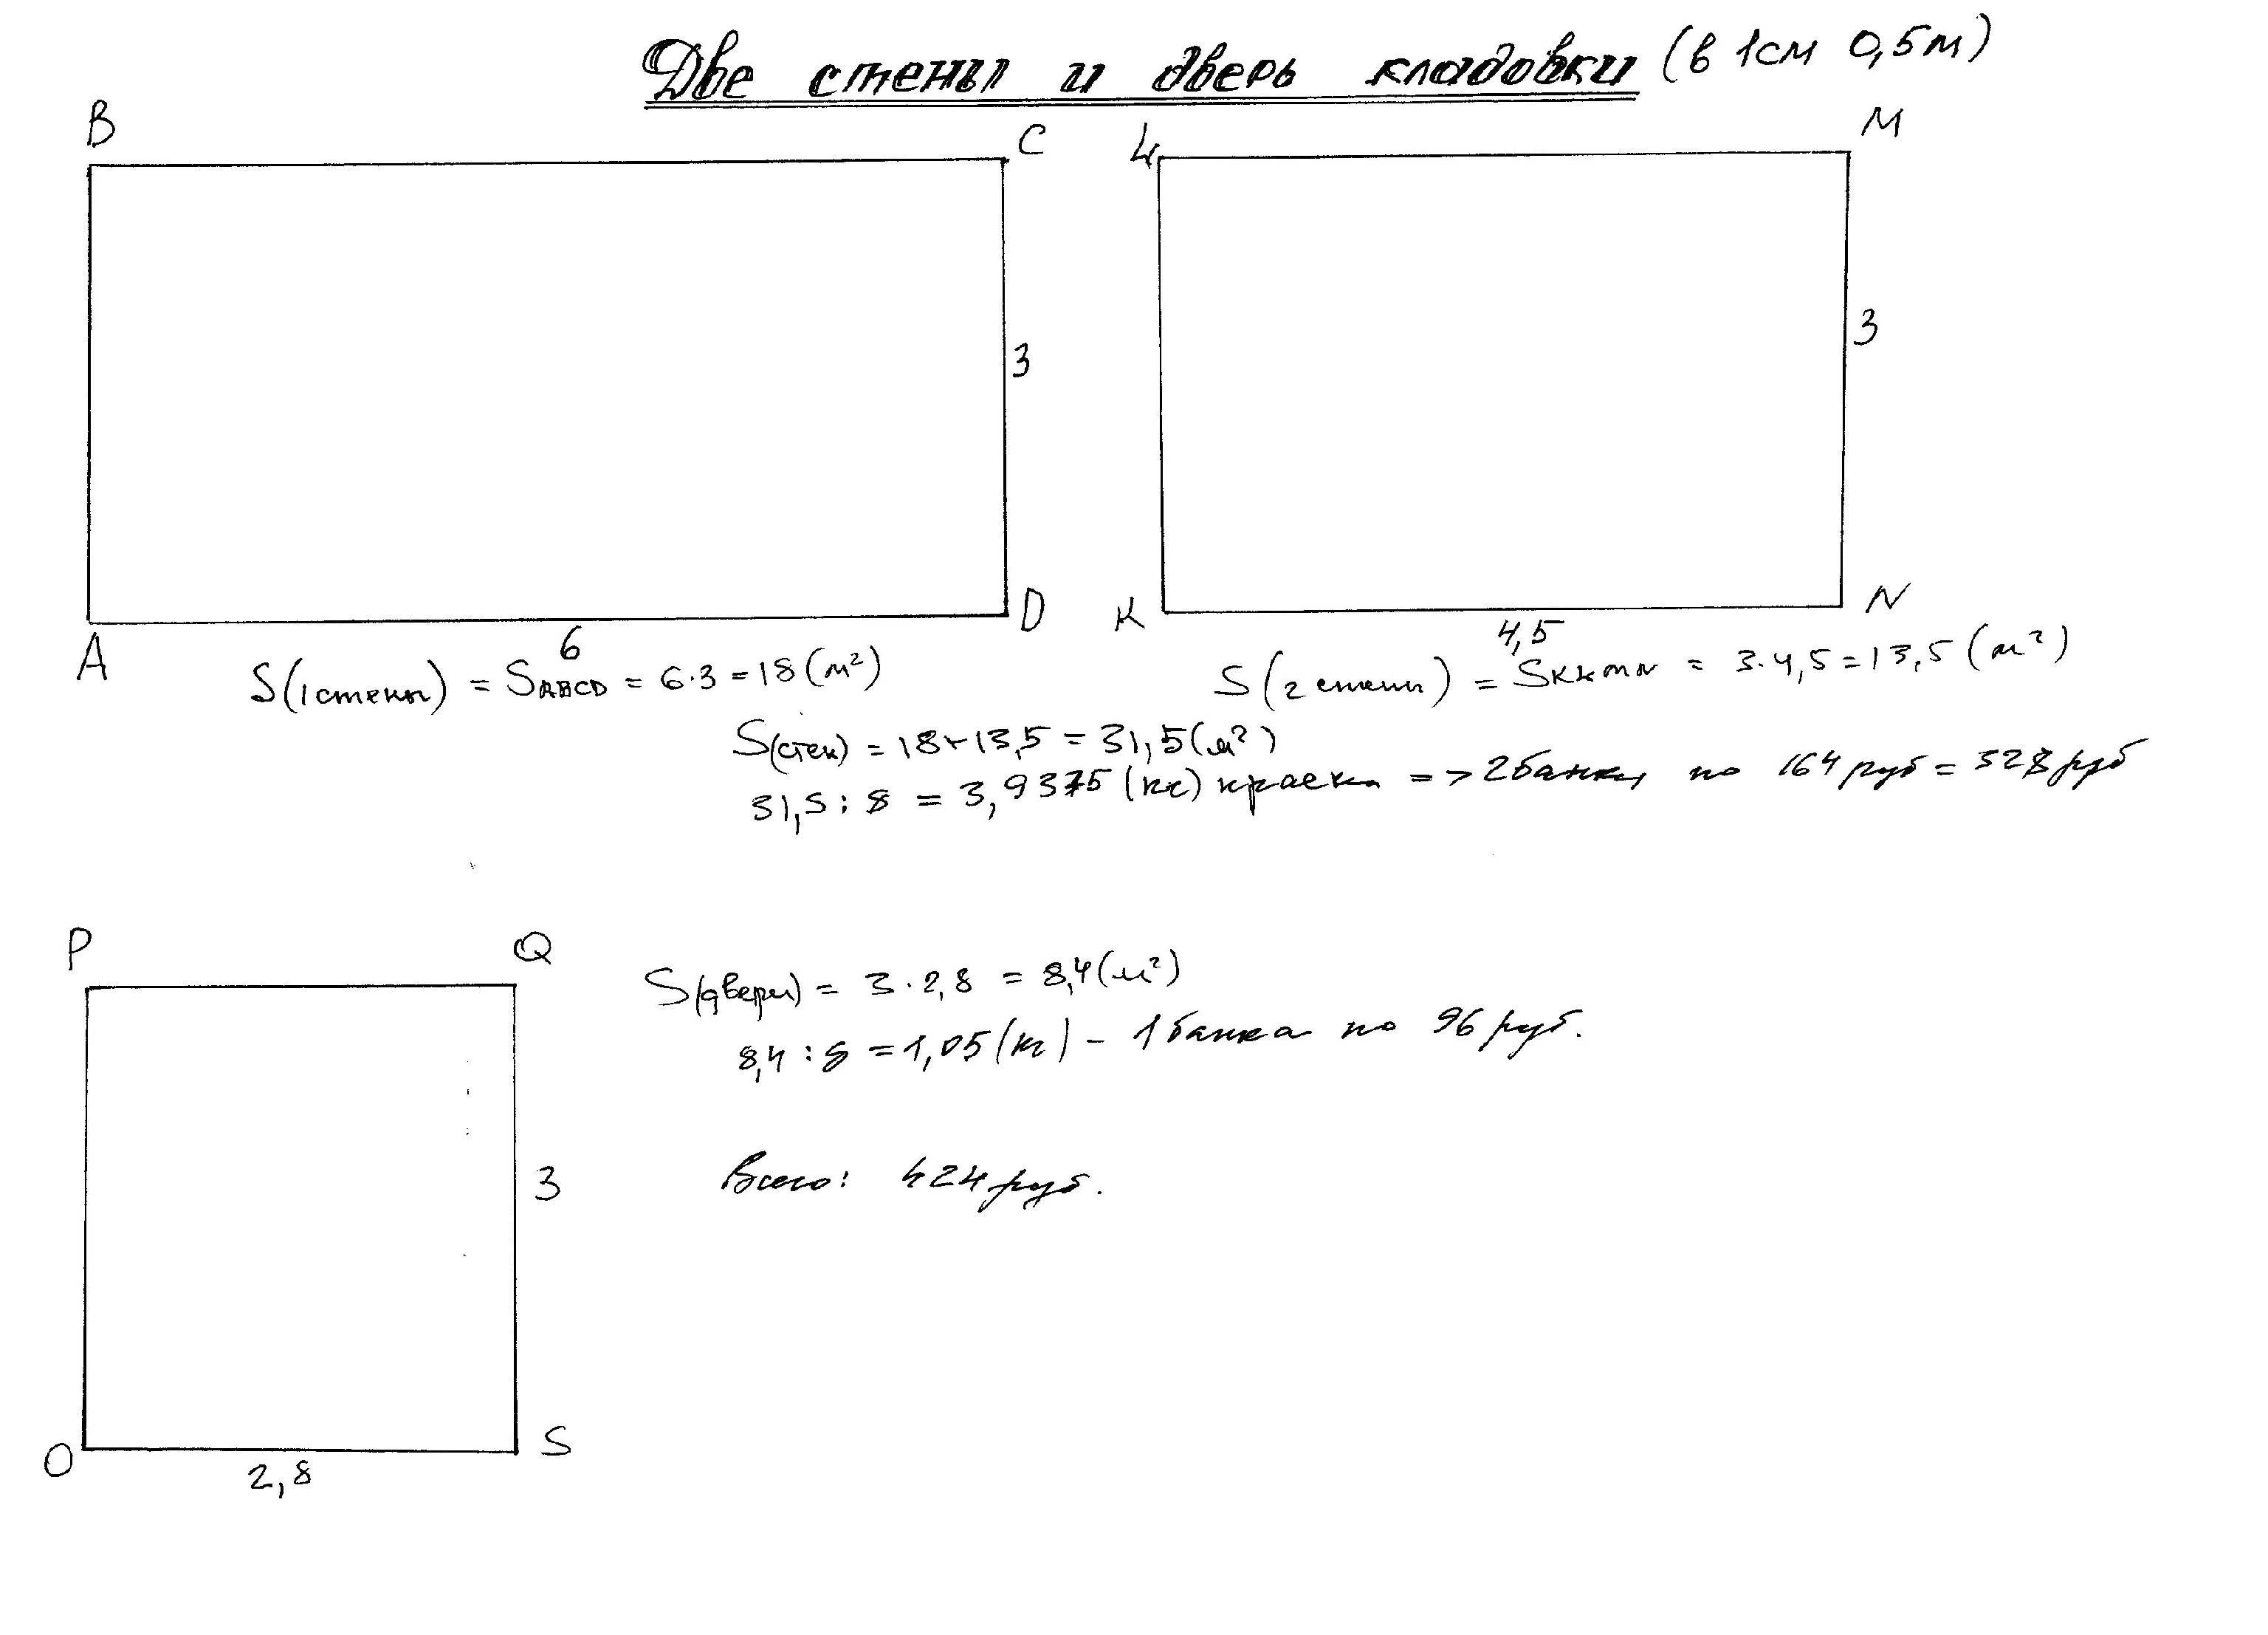 Две стены и дверь кладовки (в 1см 0,5м)
B
C
L
M
3
3
A
D
K
N
6
4,5
S(1 стены) = SABCD = 6·3 = 18 (м²)
S(2 стены) = SKLMN = 3·4,5 = 13,5 (м²)
S(стен) = 18+13,5 = 31,5 (м²)
31,5 : 8 = 3,9375 (кг) краски => 2 банки по 164 руб = 328 руб
P
Q
S(двери) = 3·2,8 = 8,4 (м²)
8,4 : 8 = 1,05 (кг) – 1 банка по 96 руб.
3
Всего: 424 руб.
O
S
2,8